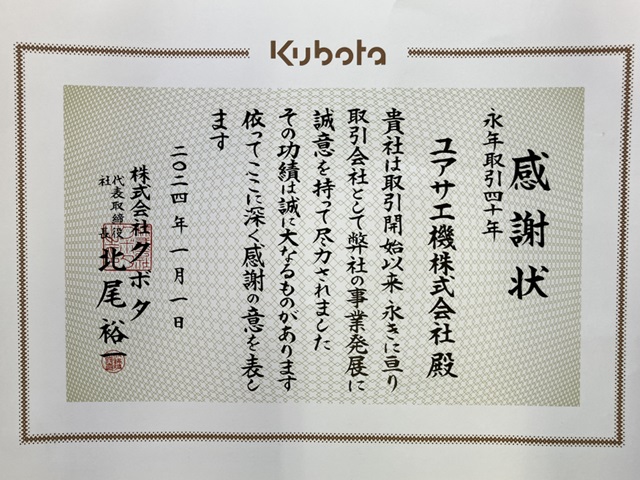 Kubota
感謝状
永年取引四十年
ユアサ工機株式会社 殿
貴社は取引開始以来 永きに亘り
取引会社として弊社の事業発展に
誠意を持って尽力されました
その功績は誠に大なるものがあります
依ってここに深く感謝の意を表し
ます
二〇二四年 一月一日
株式会社クボタ
代表取締役
社長 北尾裕一